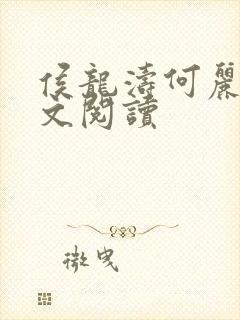 侯龍濤何麗
文閱讀
微曳